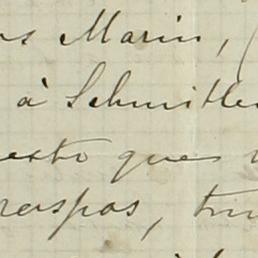 as Marin, (
à Schmitle
esto ques
raspas, tru